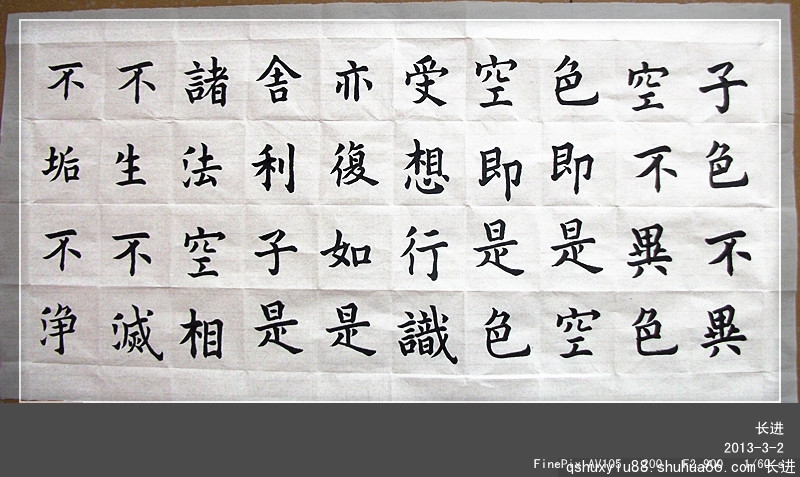 子色不異
空不異色
色即是空
空即是色
受想行識
亦復如是
舍利子是
諸法空相
不生不滅
不垢不淨
长进
2013-3-2
FinePix AV105 200 F2.900 1/60 s
qshuxyiu88.shuhua66.com 长进